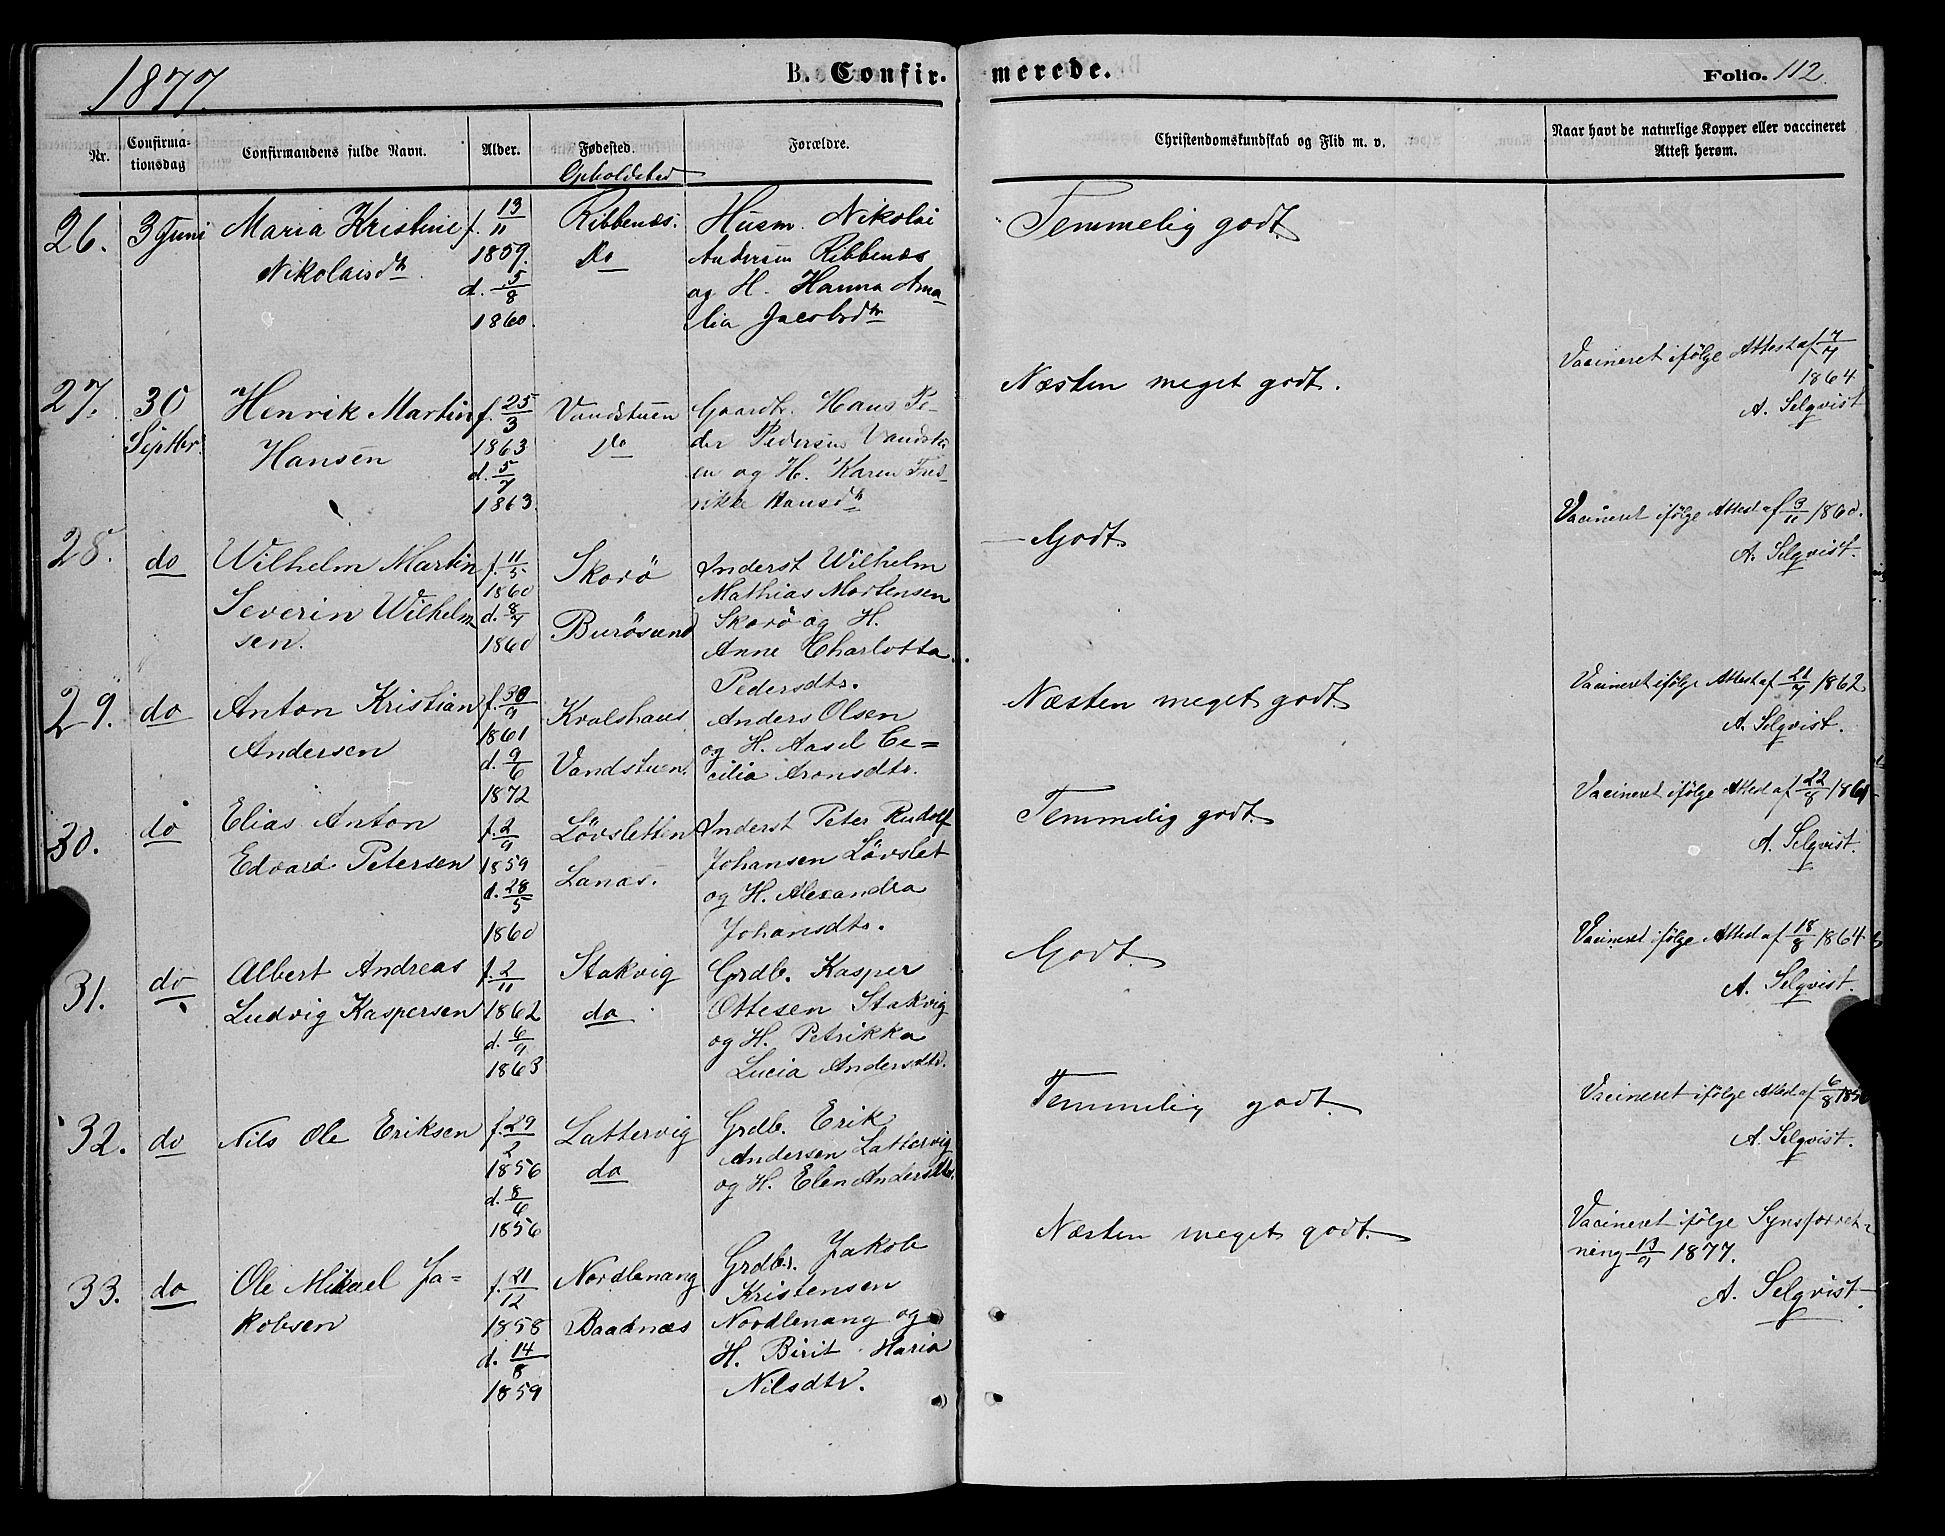 1877.
B. Confir-
merede.
Folio. 112
Nr.
Confirma-
tionsdag
Confirmandens fulde Navn.
Alder.
Fødested.
Opholdsted
Forældre.
Christendomskundskab og Flid m. v.
Naar havt de naturlige Kopper eller vaccineret
Attest herom.
26.
3 Juni
Maria Kristine
Nikolaisdtr
f. 13/11
1859.
d. 5/8
1860.
Ribbenæs.
Do
Husm. Nikolai
Andersen Ribbenæs
og H. Hanna Ama-
lia Jacobsdtr
Temmelig godt.
27.
30
Septbr.
Henrik Martin
Hansen
f. 25/3
1863
d. 5/7
1863.
Vandstuen
Do
Gaardb. Hans Pe-
der Pedersen Vandstu
en og H. Karen Fred-
rikke Hansdtr
Næsten meget godt.
Vaccineret ifølge Attest af 7/7
1864
A. Selqvist
28.
do
Wilhelm Martin
Severin Wilhelm
sen.
f. 11/5
1860
d. 8/7
1860
Skorö
Burösund
Inderst Wilhelm
Mathias Mortensen
Skorö og H.
Anne Charlotta
Pedersdtr.
Godt.
Vaccineret ifølge Attest af 3/11 1860.
A. Selqvist.
29.
do
Anton Kristian
Andersen
f. 30/9
1861
d. 9/6
1872
Kvalshaus
Vandstuen.
Anders Olsen
og H. Aasel Ce=
cilia Aronsdtr.
Næsten meget godt.
Vaccineret ifølge Attest af 21/7 1862
A. Selqvist.
30.
do
Elias Anton
Edvard Petersen
f. 2/9
1859
d. 28/5
1860
Lövsletten
Lanæs.
Inderst Peter Rudolf
Johansen Lövslet
og H. Alexandra
Johansdtr.
Temmelig godt.
Vaccineret ifølge Attest af 22/8 1861
A. Selqvist.
31.
do
Albert Andreas
Ludvig Kaspersen
f. 2/11
1862
d. 6/9
1863
Stakvig
do
Grdb. Kasper
Ottesen Stakvig
og H. Petrikka
Lucia Andersdtr.
Godt.
Vaccineret ifølge Attest af 18/8 1864
A. Selqvist.
32.
do
Nils Ole Eriksen
f. 29/2
1856
d. 8/6
1856
Lattervig
do
Grdb. Erik
Andersen Lattervig
og H. Elen Andersdtr.
Temmelig godt.
Vaccineret ifølge Attest af 6/8
A. Selqvist.
33.
do
Ole Mikael Ja-
kobsen
f. 21/12
1858
d. 14/8
1859
Nordlenang
Baadnæs
Grdbr. Jakob
Kristensen
Nordlenang og
H. Birit Maria
Nilsdtr.
Næsten meget godt.
Vaccineret ifølge Synsforret-
ning 13/9 1877.
A. Selqvist.